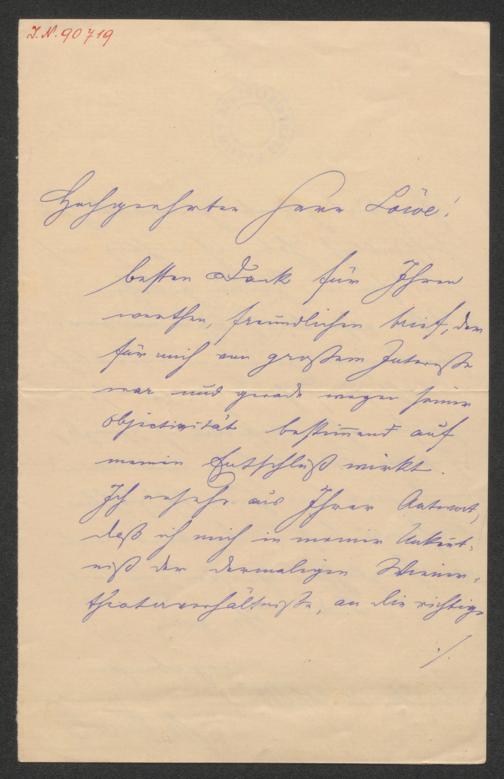 J.N. 90719
Hochgeehrter Herr Löwe!
besten Dank für Ihren
werthen, freundlichen Brief, der
für mich von großem Interesse
war und gerade wegen seiner
Objectivität bestimmend auf
meinen Entschluß wirkt.
Ich ersehe aus Ihrer Antwort,
daß ich mich in meiner Unkent-
niß der dermaligen Wiener-
theaterverhältniße, an die richtige
./.